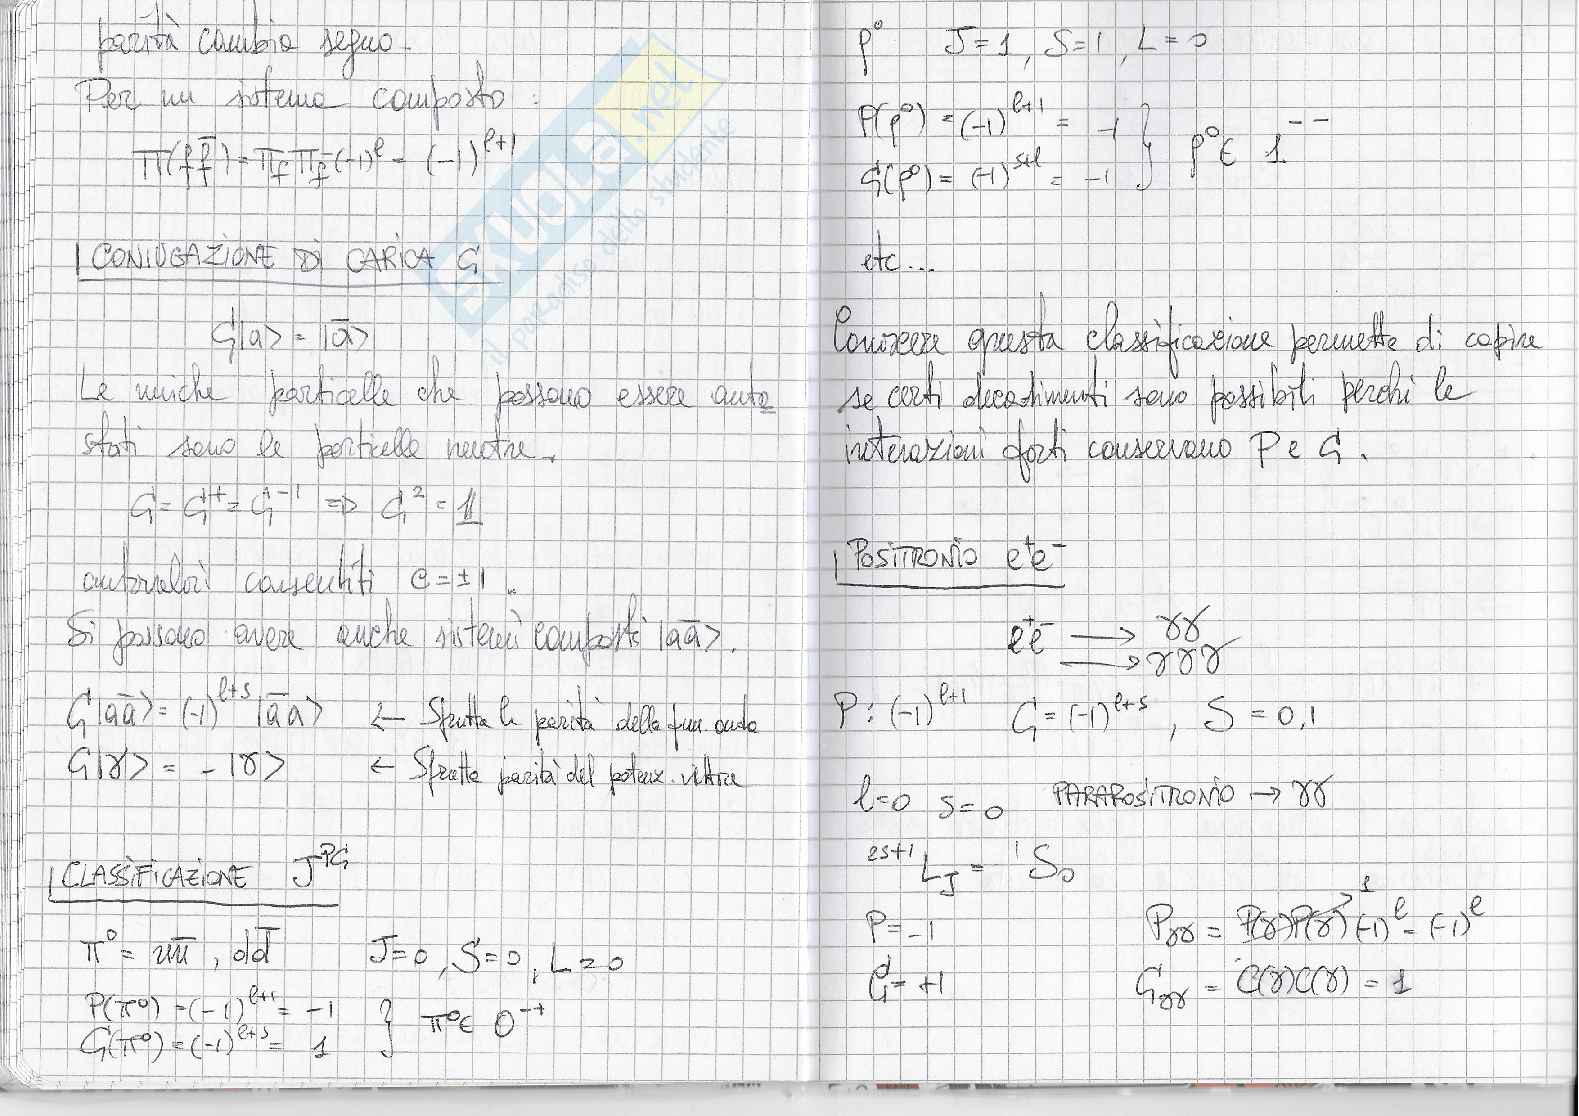 parità cambia segno.
Per un sistema composto :
π(f f̄) = π_f π_f̄ (-1)^l = (-1)^{l+1}
CONIUGAZIONE DI CARICA C
C|a> = |ā>
Le uniche particelle che possono essere auto
stati sono le particelle neutre.
C = C^+ = C^{-1} => C^2 = 1
autovalori consentiti C = ±1.
Si possono avere anche sistemi composti |aā>.
C|aā> = (-1)^{l+s} |āa> ← Sfrutta la parità della fun. onda
C|γ> = -|γ> ← Sfrutta parità del potenz. vettore
CLASSIFICAZIONE J^{PC}
π° = uū, dd̄ J=0, S=0, L=0
P(π°) = (-1)^{l+1} = -1
C(π°) = (-1)^{l+s} = 1 } π° ∈ 0^{-+}
ρ° J=1, S=1, L=0
P(ρ°) = (-1)^{l+1} = -1
C(ρ°) = (-1)^{s+l} = -1 } ρ° ∈ 1^{--}
etc...
Conoscere questa classificazione permette di capire
se certi decadimenti sono possibili perché le
interazioni forti conservano P e C.
POSITRONIO e⁺e⁻
e⁺e⁻ → γγ
→ γγγ
P: (-1)^{l+1} C = (-1)^{l+s}, S = 0,1
l=0 s=0 PARAPOSITRONIO → γγ
^{2S+1}L_J = ^1S_0
P = -1 P_γγ = P(γ)P(γ)^1 (-1)^l = (-1)^l
C = +1 C_γγ = C(γ)C(γ) = 1
SKUOLA.net
il paradiso dello studente